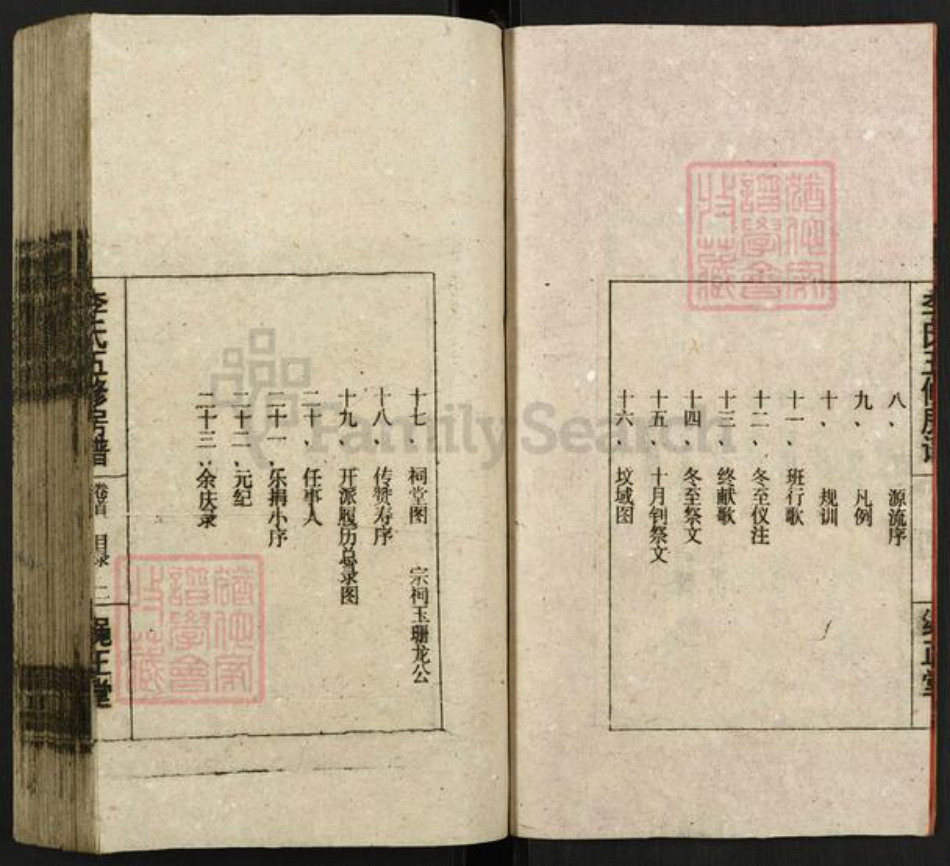 八、源流序
九、凡例
十、规训
十一、班行歌
十二、冬至仪注
十三、终献歌
十四、冬至祭文
十五、十月钊祭文
十六、坟域图
十七、祠堂图 宗祠玉珊龙公
十八、传赞寿序
十九、开派履历总录图
二十、任事人
二十一、乐捐小序
二十二、元纪
二十三、余庆录
李氏五修房谱
卷首 目录 二
绳正堂
FamilySearch
譜學會
收藏